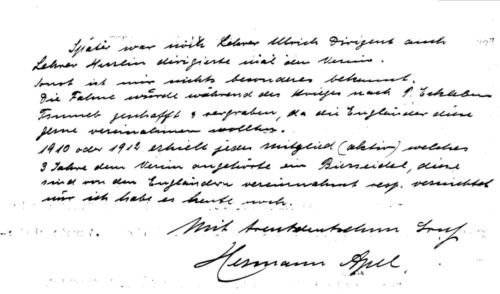 Später war noch Lehrer Ullrich Dirigent auch
Lehrer Hesslin dirigierte mal den Verein.
Sonst ist mir nichts besonderes bekannt.
Die Fahne wurde während des Krieges nach
geschafft & vergraben, da die Engländer diese
gerne vereinnahmen wollten.
1910 oder 1912 erhielt jedes Mitglied (aktiv) welches
3 Jahre dem Verein angehörte ein Bierseidel, diese
sind von den Engländern vereinnahmt resp. vernichtet
nur ich habe es heute noch.
Mit treudeutschem Gruß
Hermann Apel.